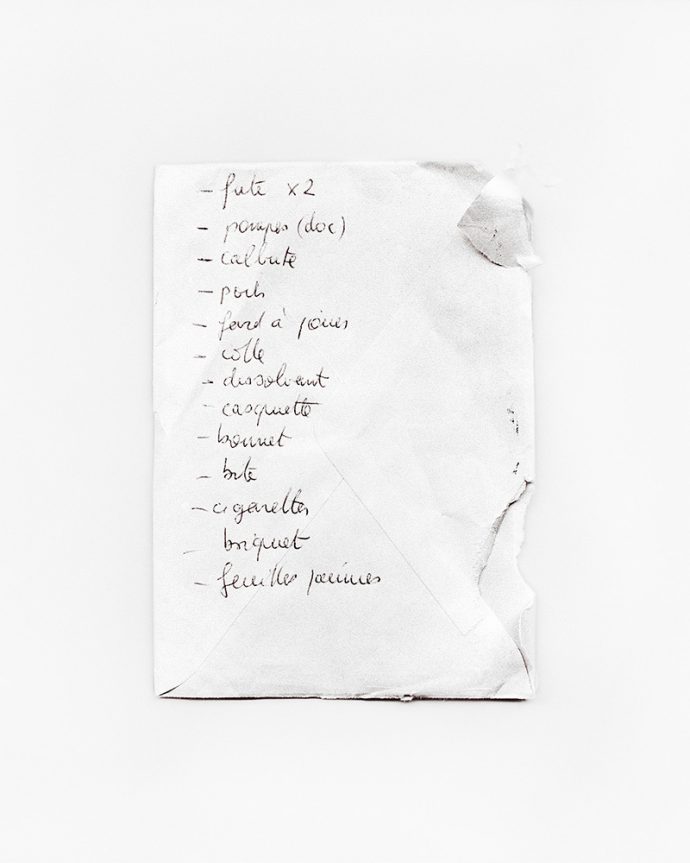 - fute x2
- pompes (doc)
- calbute
- poils
- fard à joues
- colle
- dissolvant
- casquette
- bonnet
- bite
- cigarettes
- briquet
- feuilles